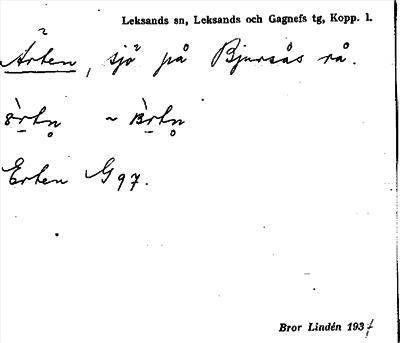 Leksands sn, Leksands och Gagnefs tg, Kopp. l.
Årten, sjö på Bjursås rå.
Erten G 97.
Bror Lindén 193